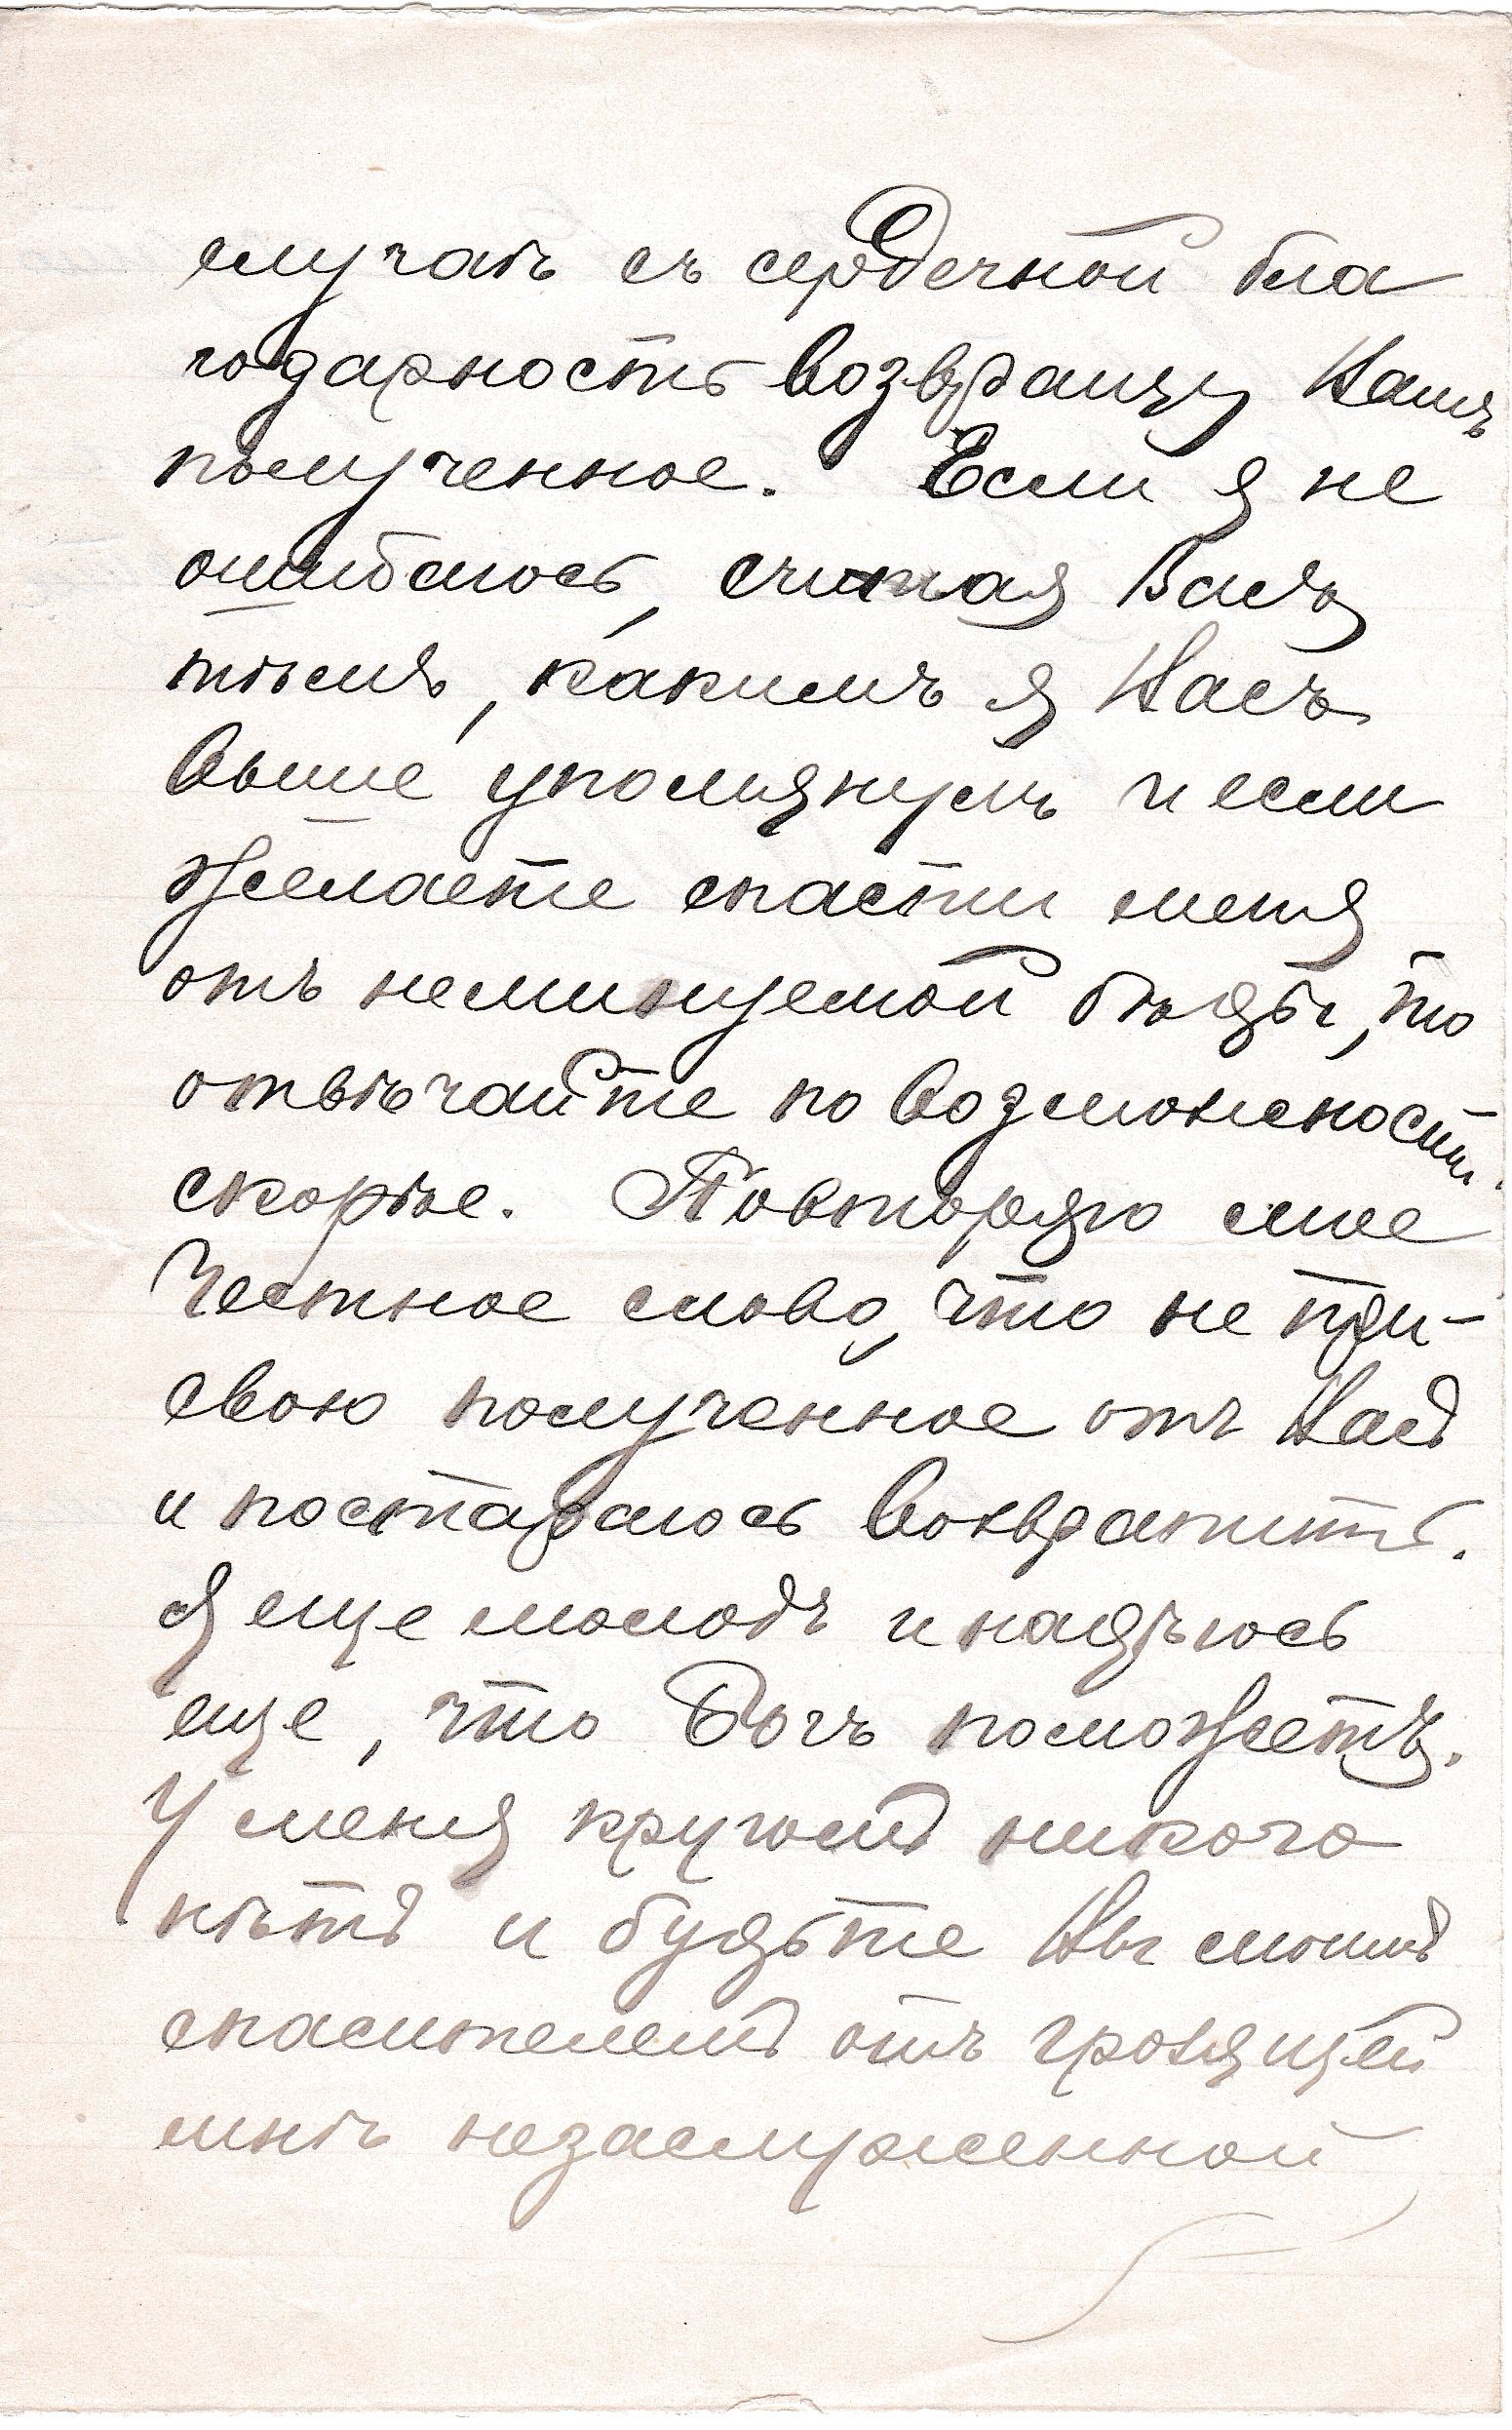 случаѣ съ сердечной бла
годарность возвращу Вамъ
полученное. Если я не
ошибаюсь, считая Васъ
тѣмъ, какимъ я Васъ
выше упомянулъ и если
желаете спасти меня
отъ неминуемой бѣды, то
отвѣчайте по возможности
скорѣе. Повторяю мое
честное слово, что не при-
свою полученное отъ Васъ
и постараюсь возвратить.
Я еще молодъ и надѣюсь
еще, что Богъ поможетъ.
У меня кругомъ никого
нѣтъ и будьте Вы моимъ
спасителемъ отъ грозящей
мнѣ незаслуженной